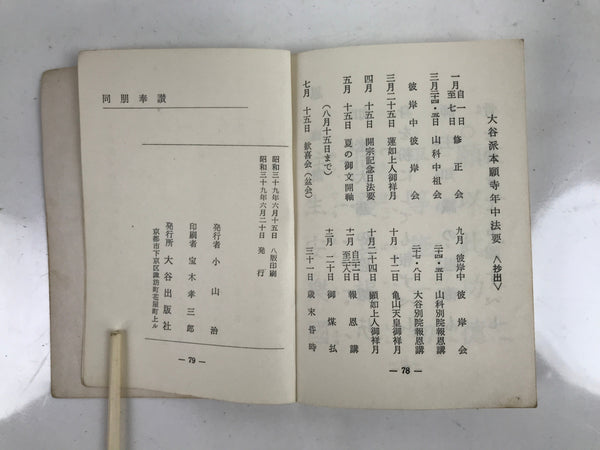 大谷派本願寺年中法要〈抄出〉
一月 自一日至七日 修正会
三月 二十四・五日 山科中祖会
彼岸中 彼岸会
三月二十五日 蓮如上人御祥月
四月 十五日 開宗記念日法要
五月 十五日 夏の御文開軸
(八月十五日まで)
七月 十五日 歓喜会(盆会)
九月 彼岸中 彼岸会
二十四・五日 山科別院報恩講
二十七・八日 大谷別院報恩講
十月 十二日 亀山天皇御祥月
十月二十四日 顕如上人御祥月
十一月 自二十一日至二十八日 報恩講
十二月 二十日 御煤払
三十一日 歳末昏時
— 78 —
同朋奉讃
昭和三十九年六月十五日 八版印刷
昭和三十九年六月二十日 発行
発行者 小山治
印刷者 宝木孝三郎
発行所 大谷出版社
京都市下京区諏訪町花屋町上ル
— 79 —